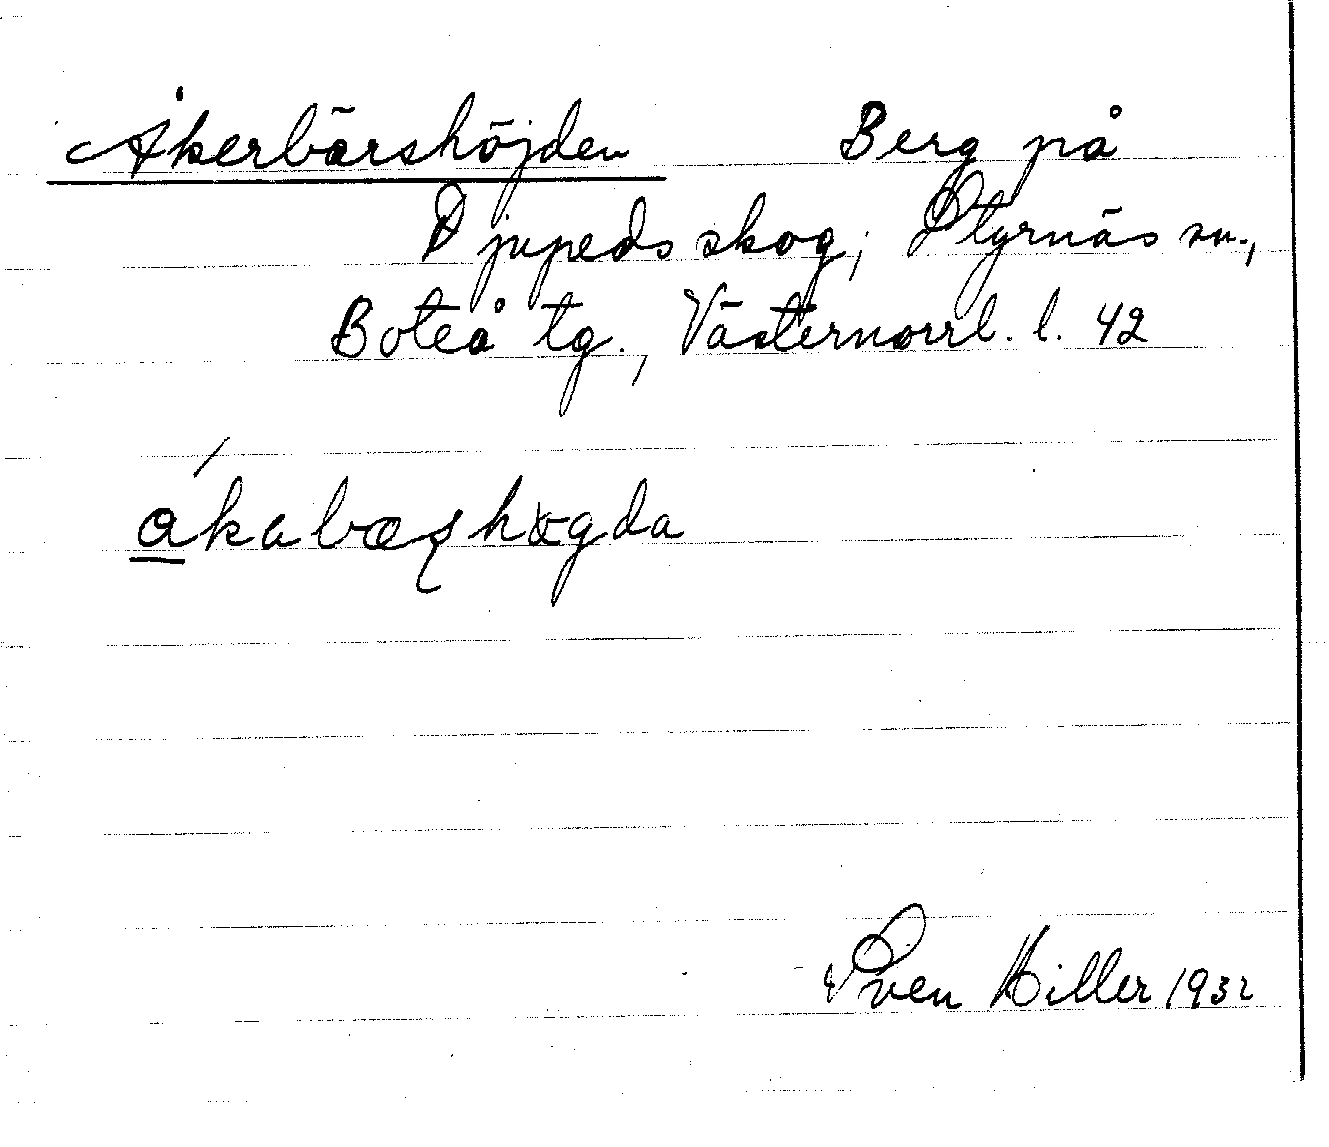 Åkerbärshöjden Berg på
Djupeds skog; Styrnäs sn.,
Boteå tg., Västernorrl. l. 42
Sven Hiller 1932